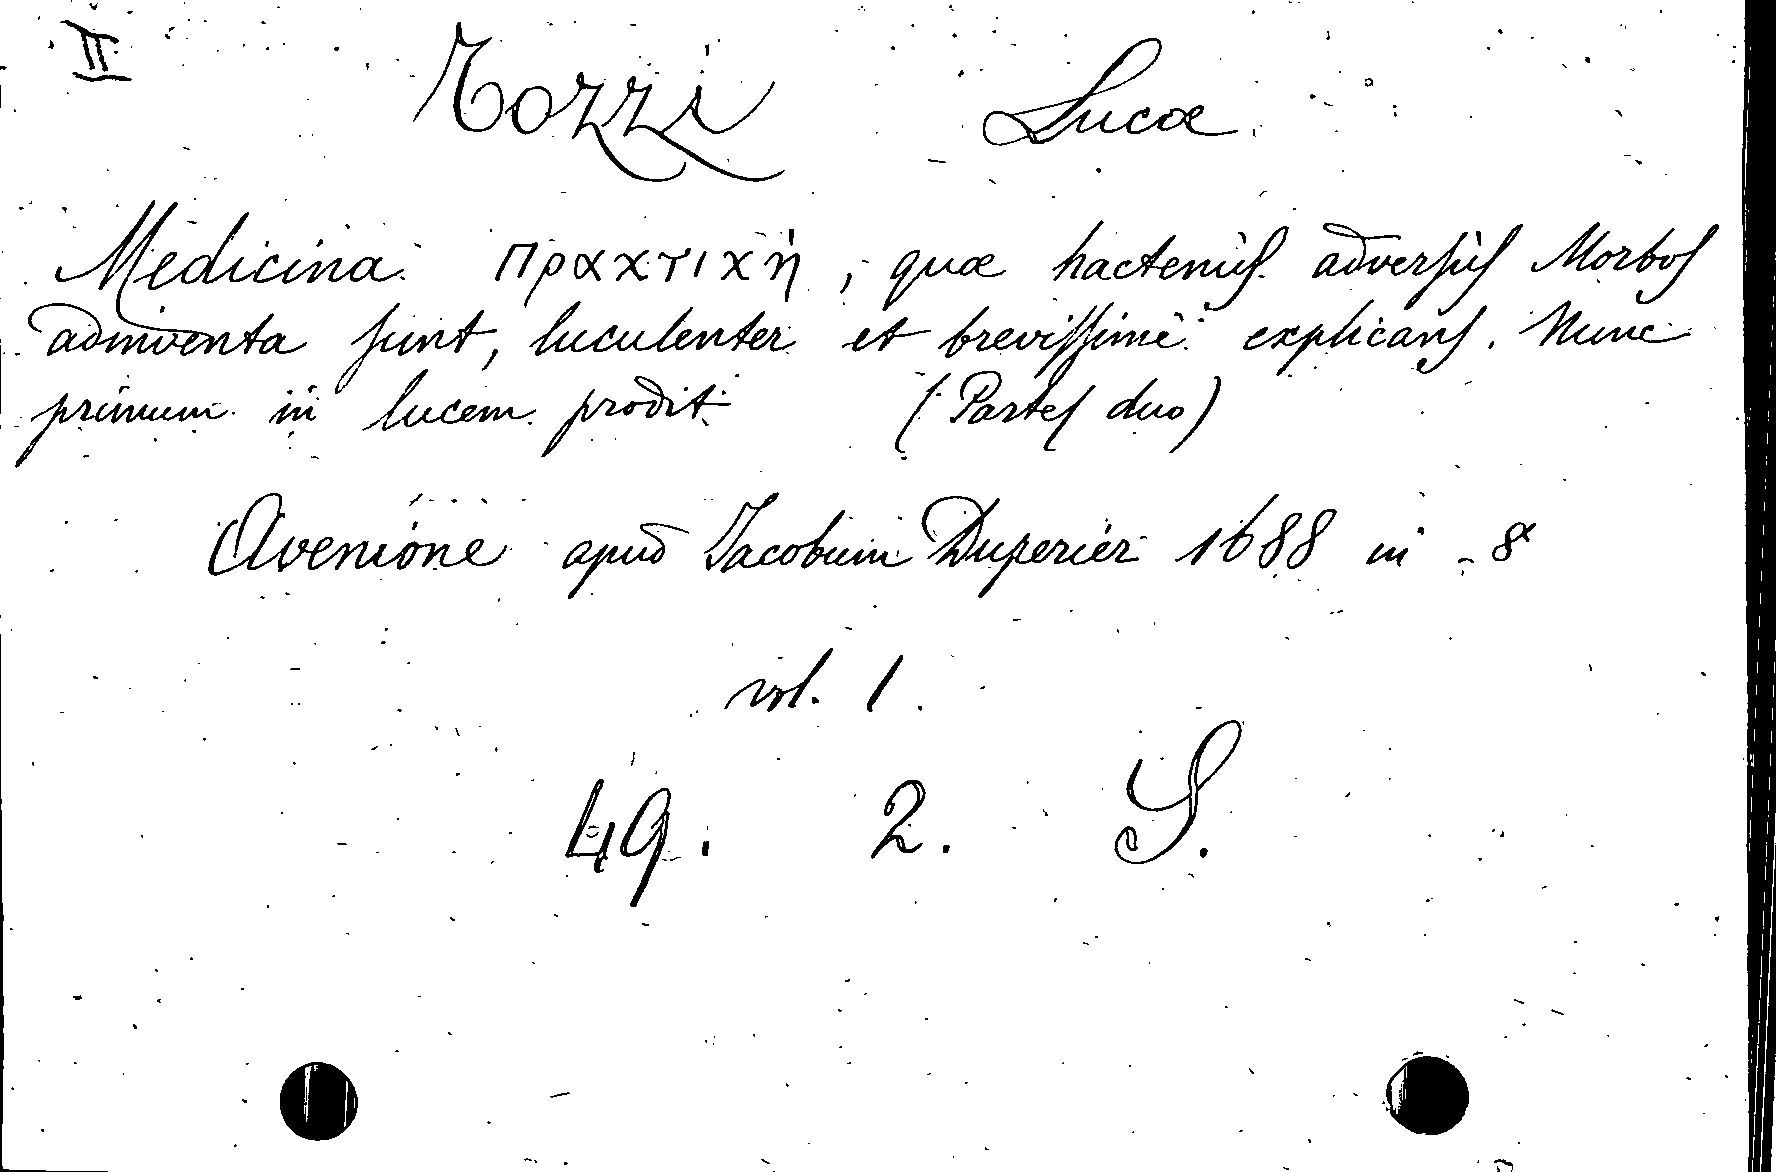 II
Tozzi Lucæ
Medicina πρακτικὴ, quæ hactenùs adversùs Morbos
adinventa sunt, luculenter et brevissimè explicans. Nunc
primum in lucem prodit (Partes duo)
Avenione apud Jacobum Duperier 1688 in-8°
vol. 1.
49. 2. S.